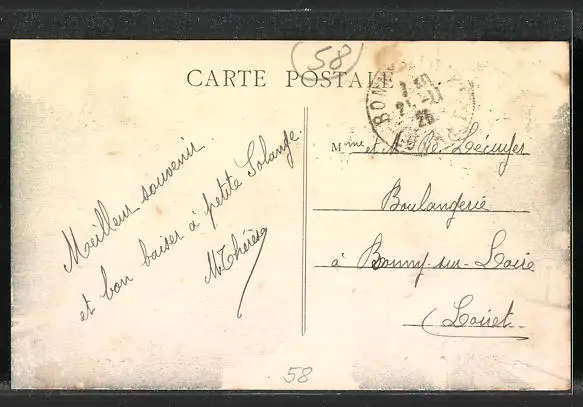 (58)
CARTE POSTALE
BONNY
7 30
21 -11
26
Meilleur souvenir
et bon baiser à petite Solange.
M. Thérèse
Mme et Mr Lécuyer
Boulangerie
à Bonny-sur-Loire
(Loiret
58